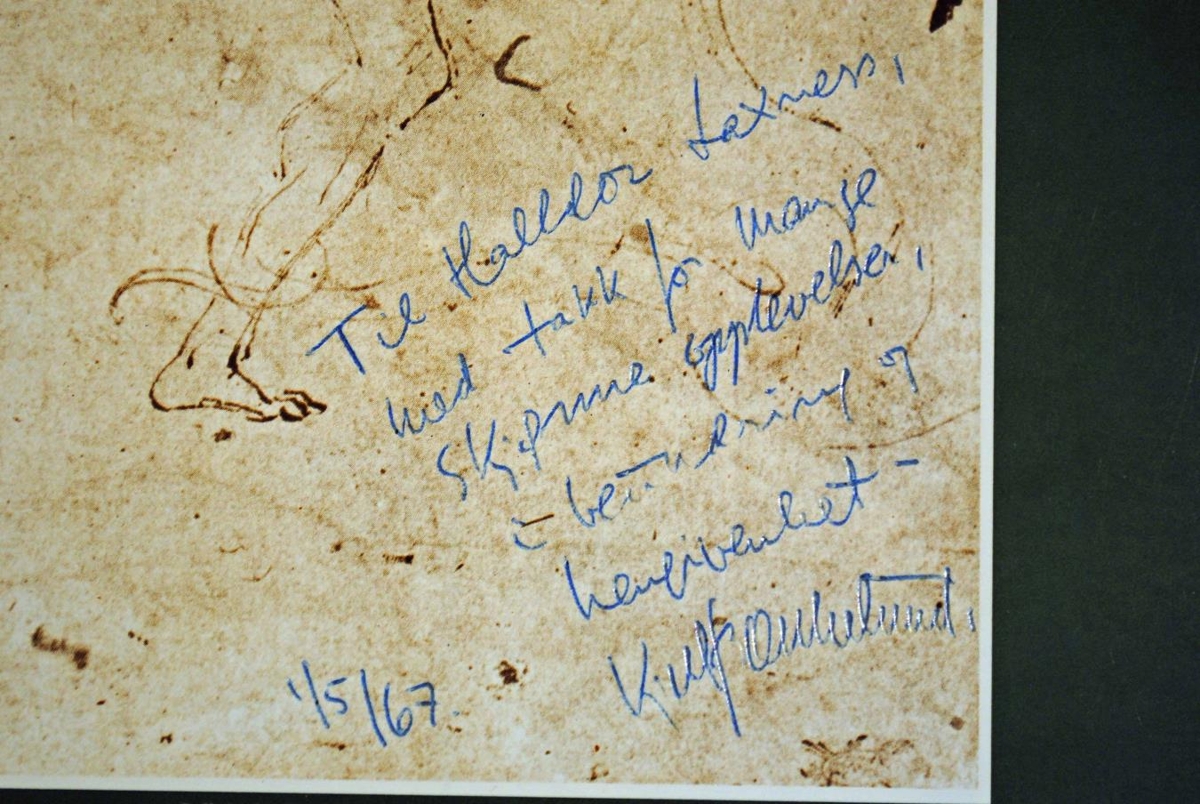 Til Halldor Laxness,
med takk for mange
skjønne opplevelser,
i beundring og
hengivenhet –
1/5/67.